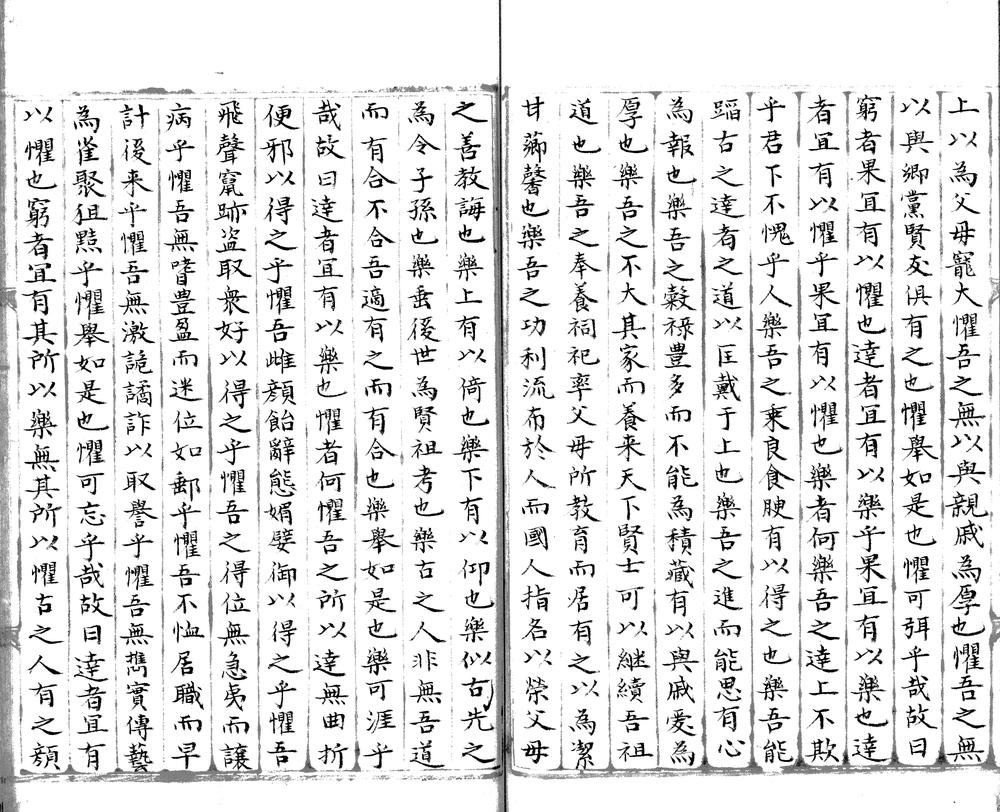 上以為父母寵大懼吾之無以與親戚為厚也懼吾之無
以與鄉黨賢友俱有之也懼舉如是也懼可弭乎哉故曰
窮者果宜有以懼也達者宜有以樂乎果宜有以樂也達
者宜有以懼乎果宜有以懼也樂者何樂吾之達上不欺
乎君下不愧乎人樂吾之乘良食腴有以得之也樂吾能
蹈古之達者之道以匡戴于上也樂吾之進而能思有心
為報也樂吾之穀祿豊多而不能為積藏有以與戚愛為
厚也樂吾之不大其家而養来天下賢士可以継續吾祖
道也樂吾之奉養祠祀率父母所教育而居有之以為潔
甘薌馨也樂吾之功利流布於人而國人指名以榮父母
之善教誨也樂上有以倚也樂下有以仰也樂似古先之
為令子孫也樂垂後世為賢祖考也樂古之人非無吾道
而有合不合吾適有之而有合也樂舉如是也樂可涯乎
哉故曰達者宜有以樂也懼者何懼吾之所以達無曲折
便邪以得之乎懼吾雌顏飴辭態媚嬖御以得之乎懼吾
飛聲竄跡盗取衆好以得之乎懼吾之得位無急夷而讓
病乎懼吾無嗜豊盈而迷位如郵乎懼吾不恤居職而早
計後来乎懼吾無激詭譎詐以取譽乎懼吾無儁實傳藝
為雀聚狙黠乎懼舉如是也懼可忘乎哉故曰達者宜有
以懼也窮者宜有其所以樂無其所以懼古之人有之顏